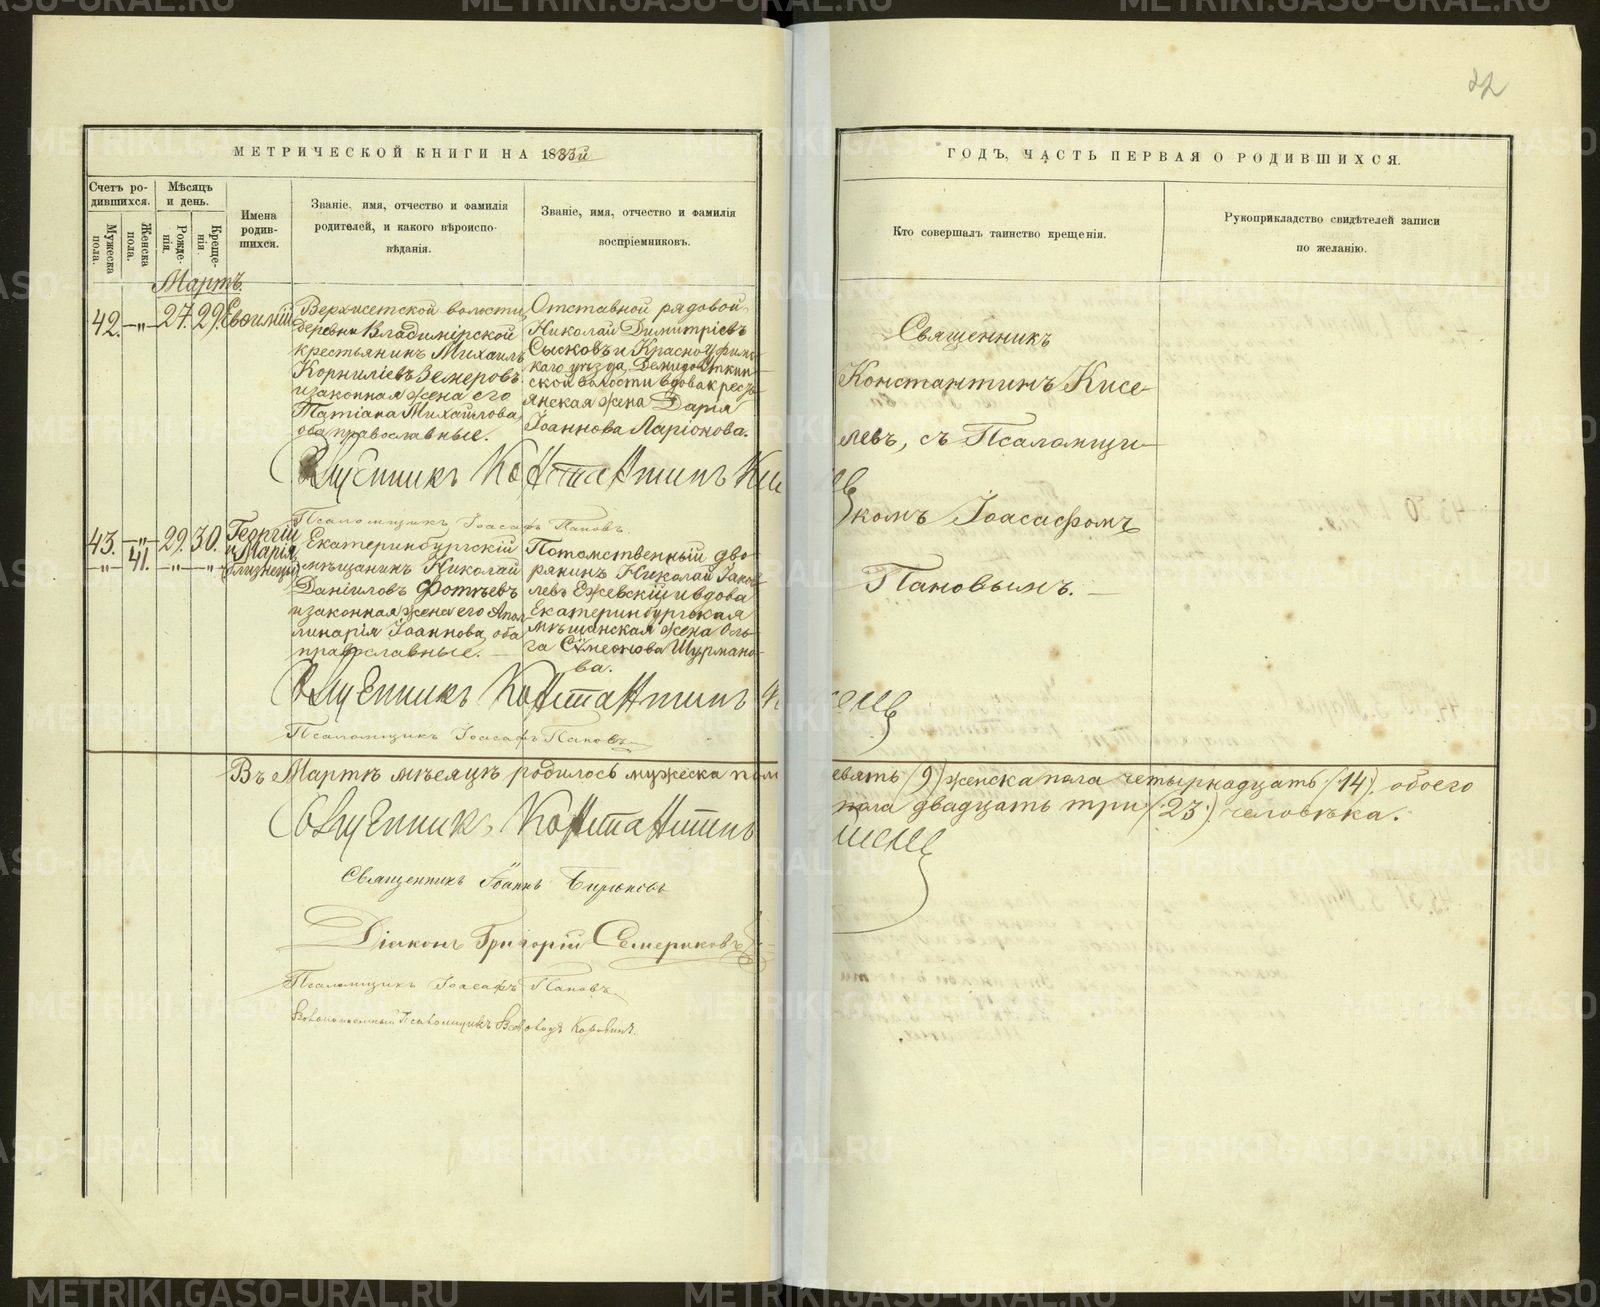 22
МЕТРИЧЕСКОЙ КНИГИ НА 1883й
ГОДЪ, ЧАСТЬ ПЕРВАЯ О РОДИВШИХСЯ.
Счетъ ро-
дившихся.
Мужеска пола.
Женска пола.
Мѣсяцъ
и день.
Рожде-
нія.
Креще-
нія.
Имена
родив-
шихся.
Званіе, имя, отчество и фамилія
родителей, и какого вѣроиспо-
вѣданія.
Званіе, имя, отчество и фамилія
воспріемниковъ.
Кто совершалъ таинство крещенія.
Рукоприкладство свидѣтелей записи
по желанію.
Мартъ.
42. —„— 27. 29. Евѳимій
Верхисетской волости,
деревни Владимірской
крестьянинъ Михаилъ
Корниліевъ Земеровъ
и законная жена его
Татіана Михайлова,
оба православные.
Отставной рядовой
Николай Димитріевъ
Сысковъ и Красноуфимс-
каго уѣзда, Демидо Уткин-
ской волости вдова крестъ-
янская жена Дарія
Іоаннова Ларіонова.
Священникъ
Константинъ Кисе-
левъ, съ Псаломщи-
комъ Іоасафомъ
Пановымъ. —
Священникъ Константинъ Ки
Псаломщикъ Іоасафъ Пановъ.
43. —„— 29. 30. Георгій
—„— 41. —„— —„— и Марія
(близнецы)
Екатеринбургскій
мѣщанинъ Николай
Даніиловъ Фотѣевъ
и законная жена его Апол-
линарія Іоаннова, оба
православные. —
Потомственный дво-
рянинъ Николай Іаков-
левъ Ежевскій и вдова
Екатеринбургская
мѣщанская жена Оль-
га Сѵмеонова Шурмано-
ва.
Священникъ Константинъ К
Псаломщикъ Іоасафъ Пановъ
Въ Мартѣ мѣсяцѣ родилось мужеска пола
евять (9) женска пола четырнадцать (14), обоего
пола двадцать три (23) человѣка.
Священникъ Константинъ
Священникъ Іоаннъ Бирюковъ
Діаконъ Григорій Семериковъ
Псаломщикъ Іоасафъ Пановъ.
METRIKI.GASO-URAL.RU